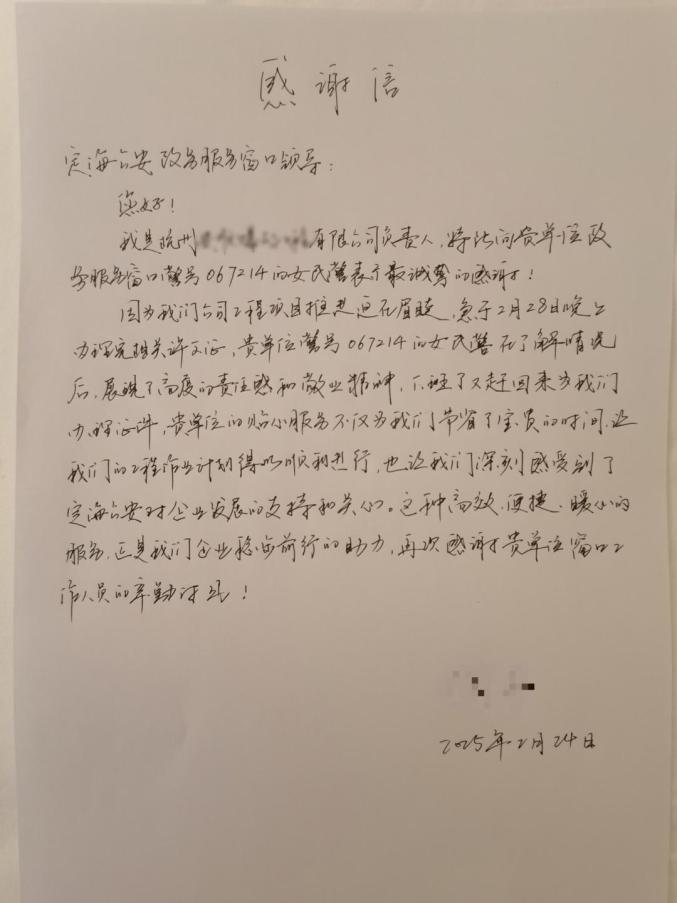 感谢信
定海公安政务服务窗口领导：
您好！
我是杭州有限公司负责人，特此向贵单位政
务服务窗口警号067214的女民警表示最诚挚的感谢！
因为我们公司工程项目推进迫在眉睫，急于2月28日晚上
办理完相关许可证，贵单位警号067214的女民警在了解情况
后，展现了高度的责任感和敬业精神，下班了又赶回来为我们
办理证件，贵单位的贴心服务不仅为我们节省了宝贵的时间，让
我们的工程作业计划得以顺利进行，也让我们深刻感受到了
定海公安对企业发展的支持和关心。这种高效、便捷、暖心的
服务，正是我们企业稳步前行的助力，再次感谢贵单位窗口工
作人员的辛勤付出！
2025年2月24日